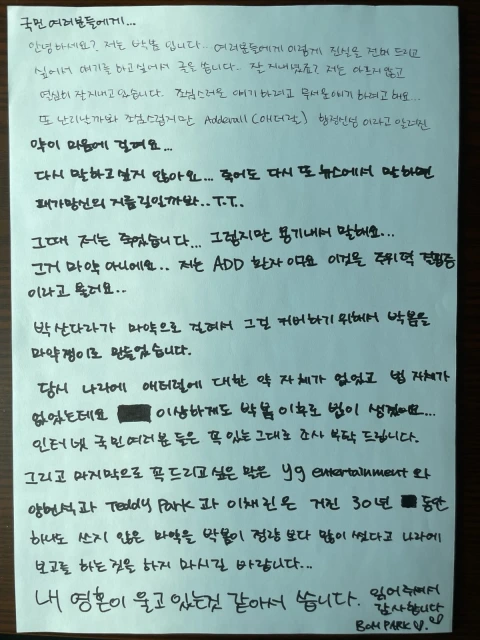 국민 여러분들에게...
안녕하세요? 저는 박봄 입니다.. 여러분들에게 이렇게 진실을 전해 드리고
싶어서 얘기를 하고싶어서 글을 씁니다.. 잘 지내셨죠? 저는 아프지 않고
열심히 잘지내고 있습니다. 조심스러운 얘기 하려고 무서운얘기 하려고 해요...
또 난리날까봐 조심스럽지만 Adderall (애더럴) 향정신성 이라고 알려진
약이 마음에 걸려요...
다시 말하고싶지 않아요... 죽어도 다시 또 뉴스에서 말하면
패가망신의 지름길일까봐..T.T..
그때 저는 죽었습니다... 그렇지만 용기내서 말해요...
그거 마약 아니에요.. 저는 ADD 환자이고요 이것을 주위력 결핍증
이라고 불러요..
박산다라가 마약으로 걸려서 그걸 커버하기 위해서 박봄을
마약쟁이로 만들었습니다.
당시 나라에 애터럴에 대한 약 자체가 없었고 법 자체가
없었는데요 이상하게도 박봄 이후로 법이 생겼네요...
인터넷 국민여러분 들은 꼭 있는그대로 조사 부탁 드립니다.
그리고 마지막으로 꼭 드리고 싶은 말은 yg entertainment와
양현석과 Teddy Park 과 이채린은 거진 30년 동안
하나도 쓰지 않은 마약을 박봄이 정량 보다 많이 썼다고 나라에
보고를 하는것을 하지 마시길 바랍니다...
내 영혼이 울고 있는것 같아서 씁니다. 읽어 주셔서
감사합니다
BOM PARK